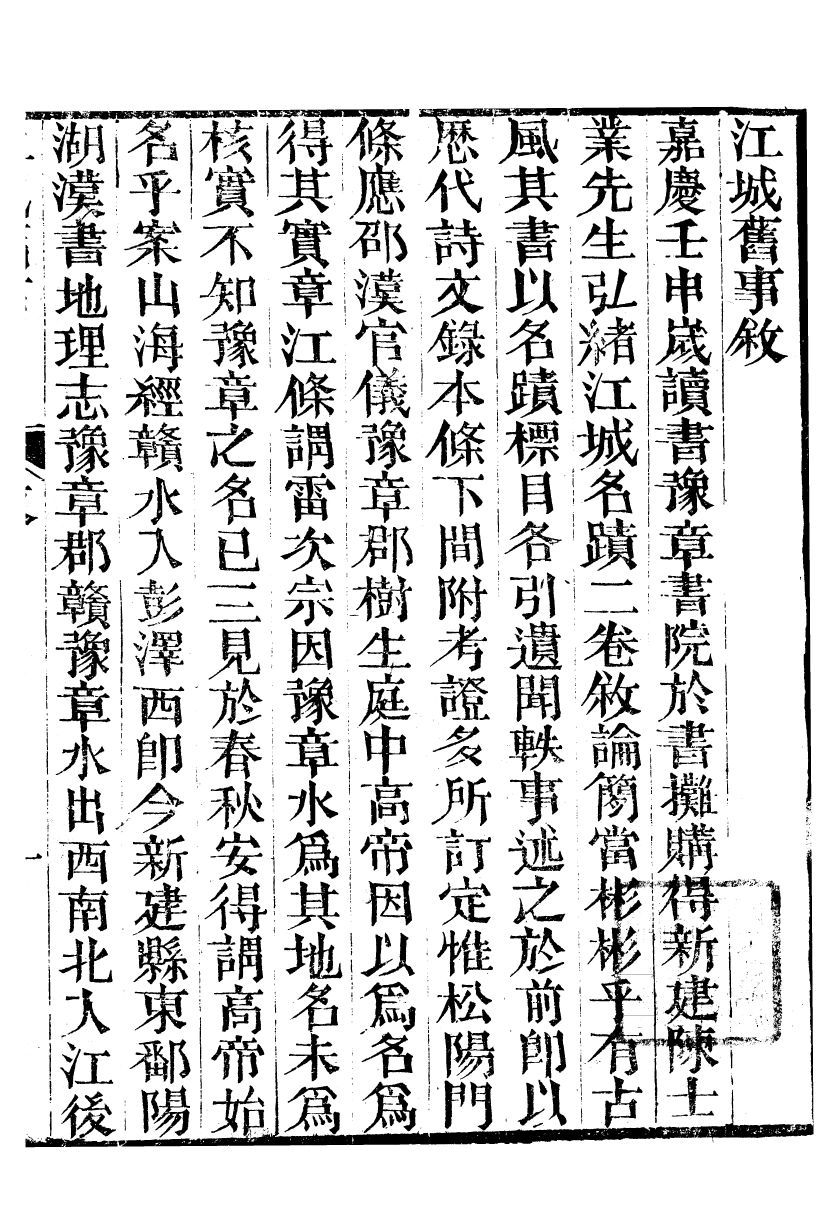 江城舊事敘
嘉慶壬申歲讀書豫章書院於書攤購得新建陳士
業先生弘緒江城名蹟二卷敘論簡當彬彬乎有古
風其書以名蹟標目各引遺聞軼事述之於前即以
歷代詩文錄本條下間附考證多所訂定惟松陽門
條應邵漢官儀豫章郡樹生庭中高帝因以爲名爲
得其實章江條謂雷次宗因豫章水爲其地名未爲
核實不知豫章之名已三見於春秋安得謂高帝始
名乎案山海經贛水入彭澤西即今新建縣東鄱陽
湖漢書地理志豫章郡贛豫章水出西南北入江後
一